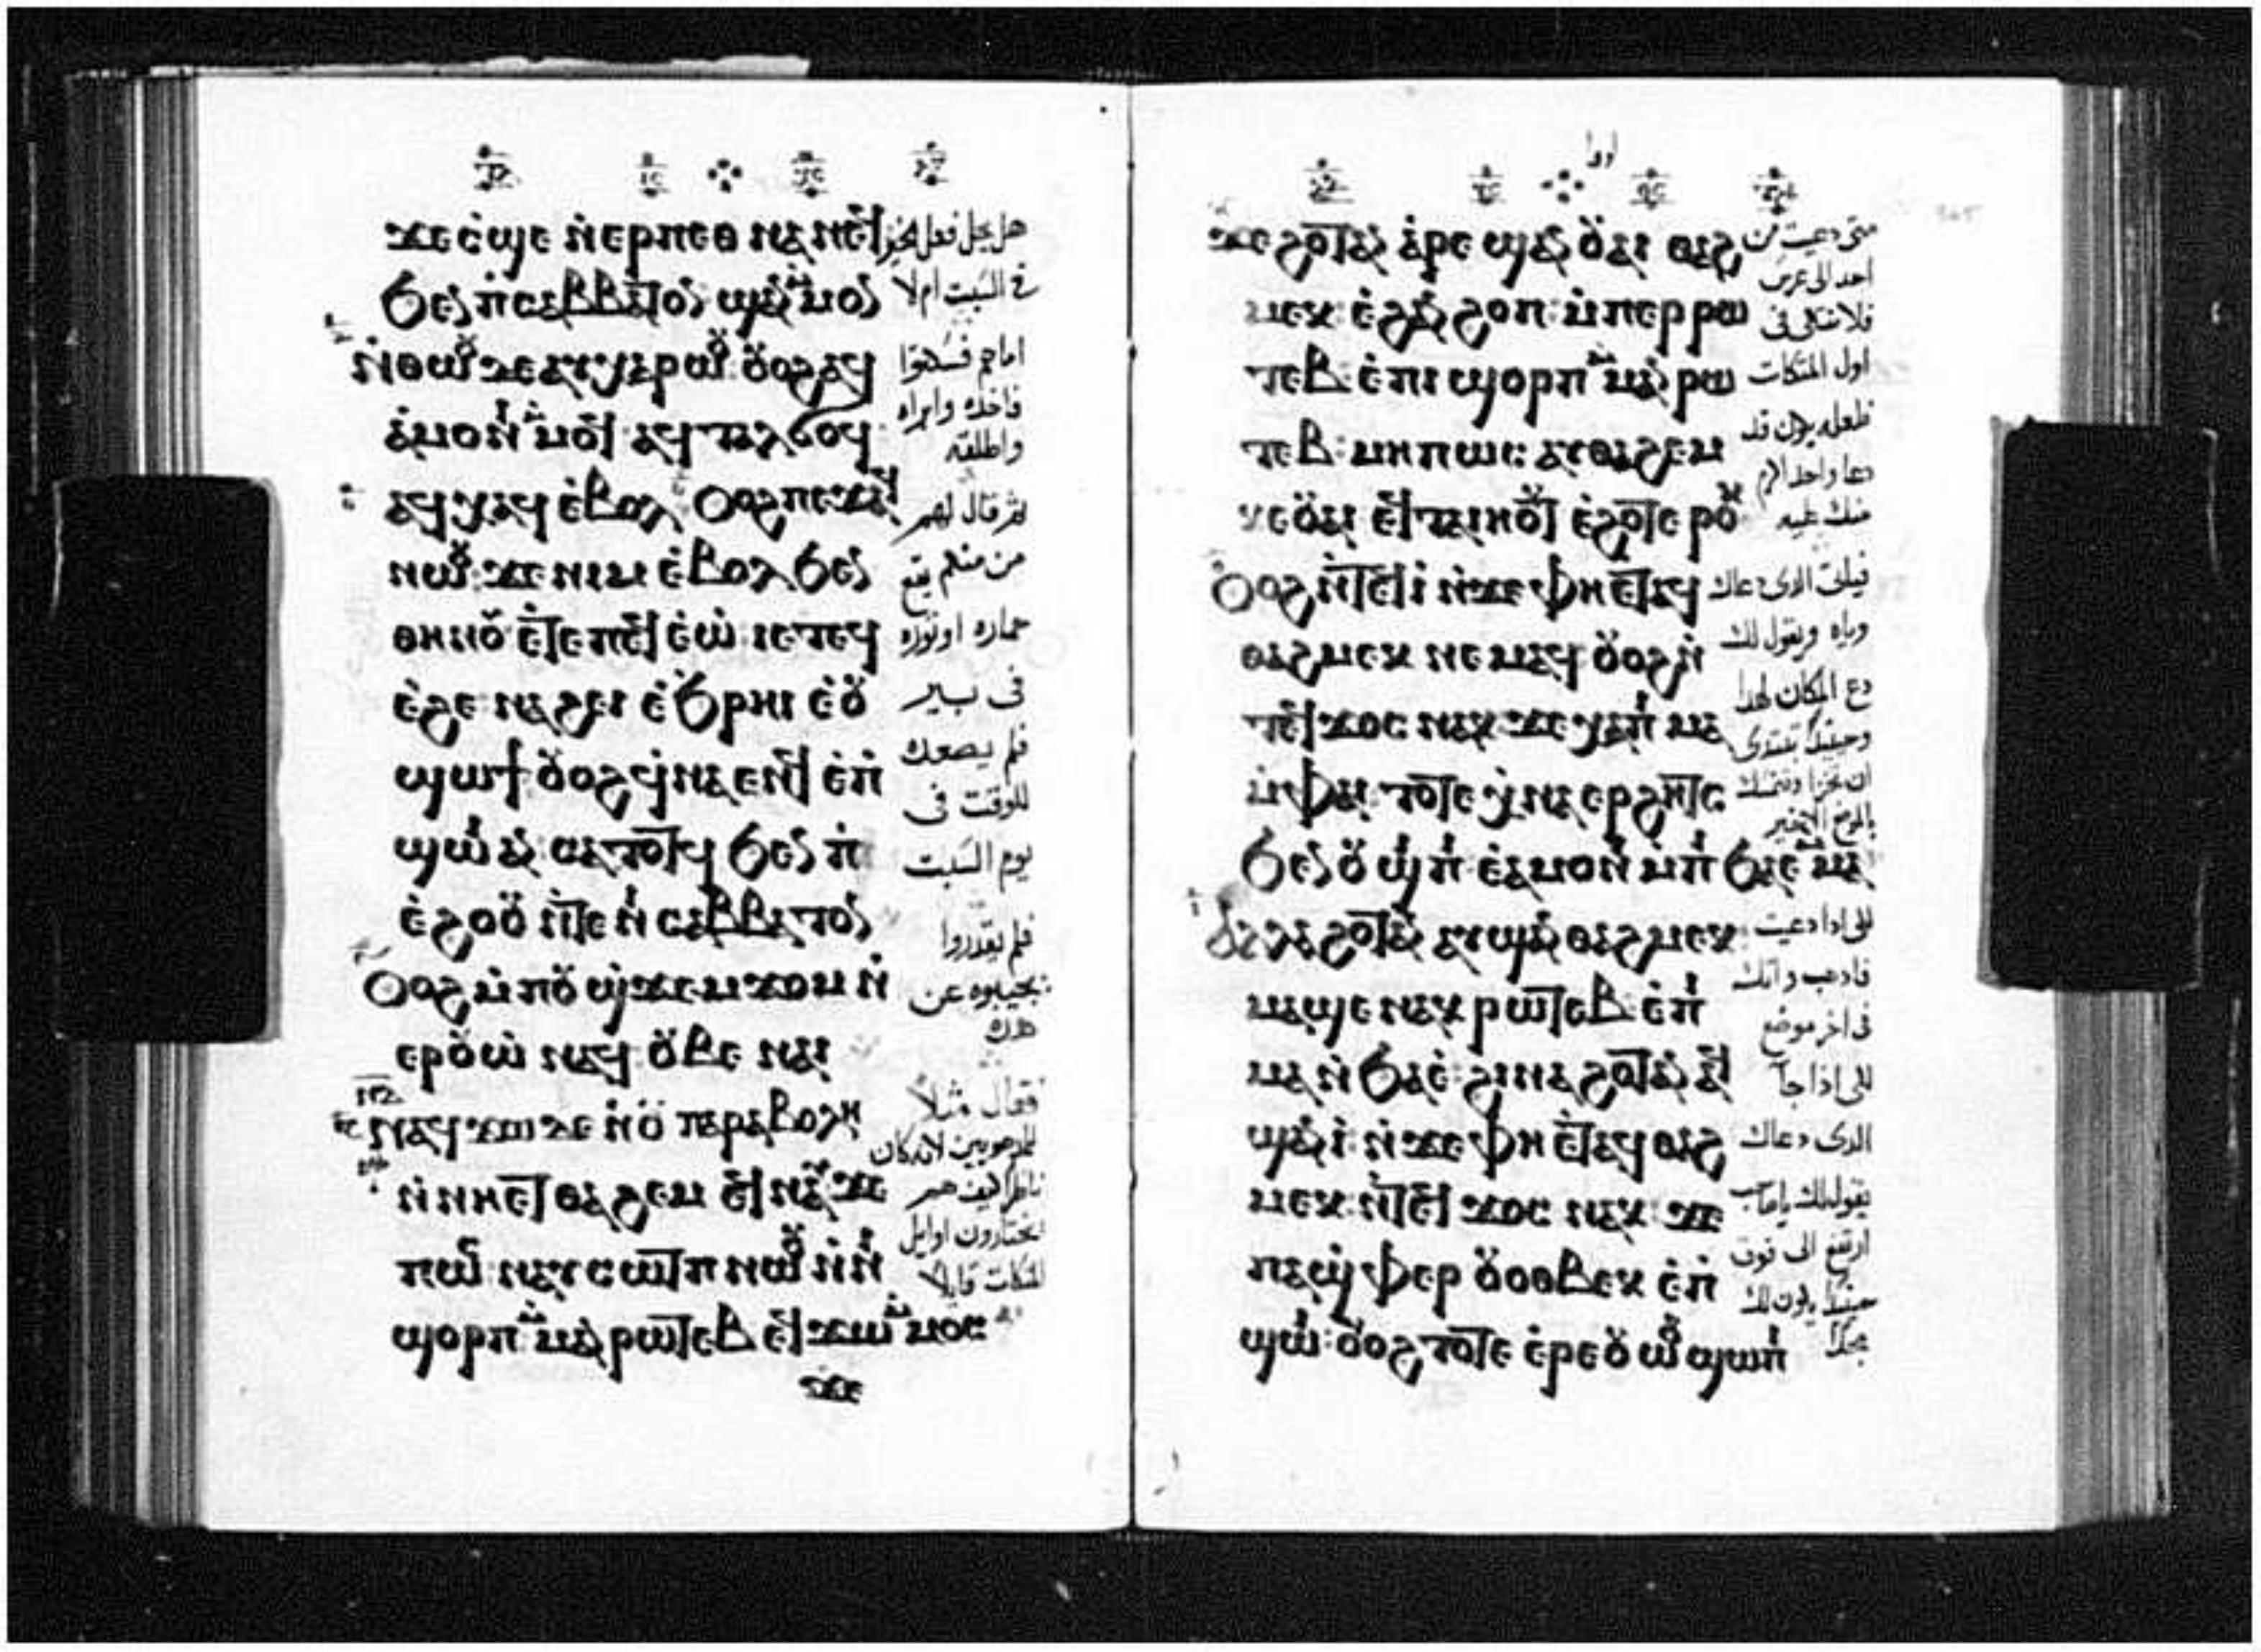 ϫⲉ ⲥ̇ϣⲉ ⲛ̇ⲉⲣⲡⲉⲑ ⲛⲁⲛⲉϥ
ϧⲉⲛ ⲡ̇ⲥⲁⲃⲃⲁⲧⲟⲛ ϣⲁⲛ ⲙ̇ⲙⲟⲛ
ⲛ̇ⲑⲱⲟⲩ ⲇⲉ ⲁⲩⲭⲁⲣⲱⲟⲩ ⲟⲩⲟϩ ⲁϥ
ⲁ̇ⲙⲟⲛⲓ ⲙ̇ⲙⲟϥ ⲁϥⲧⲁⲗϭⲟϥ
ⲁϥⲭⲁϥ ⲉ̇ⲃⲟⲗ ⲟⲩⲟϩ ⲡⲉϫⲁϥ
ⲛⲱⲟⲩ ϫⲉ ⲛⲓⲙ ⲉ̇ⲃⲟⲗ ϧⲉⲛ
ⲑⲏⲛⲟⲩ ⲉ̇ⲧⲉ ⲡⲉϥ ⲉ̇ⲱ̇ ⲓⲉ ⲧⲉϥ
ⲉ̇ϩⲉ ⲛⲁϩⲉⲓ ⲉ̇ϧⲣⲏⲓ ⲉ̇ⲟⲩ
ϣⲱϯ ⲟⲩⲟϩ ϥ̇ⲛⲁⲉⲛϥ ⲉ̇ⲡ̇
ϣⲱⲓ ⲁⲛ ⲥⲁⲧⲟⲧϥ ϧⲉⲛ ⲡⲓ
ⲉ̇ϩⲟⲟⲩ ⲛ̇ⲧⲉ ⲛⲓ ⲥⲁⲃⲃⲁⲧⲟⲛ
ⲟⲩⲟϩ ⲙ̇ⲡⲟⲩϣ̇ϫⲉⲙϫⲟⲙ ⲛ̇
ⲉⲣⲟⲩⲱ̇ ⲛⲁϥ ⲟⲩⲃⲉ ⲛⲁⲓ
ⲛⲁϥϫⲱ ⲇⲉ ⲛ̇ⲟⲩ ⲡⲁⲣⲁⲃⲟⲗⲏ
ⲛ̇ⲛⲏⲉⲧ ⲑⲁϩⲉⲙ ⲉϥⲛⲁⲩ ϫⲉ
ⲡⲱⲥ ⲛⲁⲩⲥⲱⲧⲡ ⲛⲱⲟⲩ ⲛ̇ⲛⲓ
ϣⲟⲣⲡ ⲙ̇ⲙⲁⲛⲣⲱⲧⲉⲃ ⲉϥϫⲱ ⲙ̇ⲙⲟⲥ
هل يحل فعل الخير
في السبت ام لا
اما هم فسكتوا
فاخذه وابراه
واطلقه
ثم قال لهم
من منكم يقع
حماره او ثوره
في بير
فلم يصعده
للوقت في
يوم السبت
فلم يقدروا
يجيبوه عن
هذه
فقال مثلا
للمدعويين لانه كان
ناظرا كيف هم
يختارون اوايل
المتكات قايلا
ϫⲉ ϩⲟⲧⲁⲛ ⲁ̇ⲣⲉ ϣⲁⲛ ⲟⲩⲁⲓ ⲑⲁϩ
ⲙⲉⲕ ⲉ̇ϩⲁⲛ ϩⲟⲡ ⲙ̇ⲡⲉⲣⲣⲱ
ⲧⲉⲃ ⲉ̇ⲡⲓ ϣⲟⲣⲡ ⲙ̇ⲙⲁⲛⲣⲱ
ⲧⲉⲃ ⲙⲏⲡⲱⲥ ⲁⲩⲑⲁϩⲉⲙ
ⲕⲉⲟⲩⲁⲓ ⲉϥⲧⲁⲓⲏⲟⲩⲧ ⲉ̇ϩⲟⲧⲉ ⲣⲟⲕ
ⲟⲩⲟϩ ⲛ̇ⲧⲉϥⲓ̇ ⲛ̇ϫⲉ ⲫⲏ ⲉⲧⲁϥ
ⲑⲁϩⲙⲉⲕ ⲛⲉⲙⲁϥ ⲟⲩⲟϩ ⲛ̇
ⲧⲉϥϫⲟⲥ ⲛⲁⲕ ϫⲉ ⲭⲁⲡⲓ ⲙⲁ
ⲙ̇ⲫⲁⲓ ⲧⲟⲧⲉ ⲭ̇ⲛⲁⲉⲣϩⲏⲧⲥ
ϧⲉⲛ ⲟⲩ ϣⲓⲡⲓ ⲉ̇ⲁⲙⲟⲛⲓ ⲙ̇ⲡⲓ ϧⲁⲉ̇ ⲙ̇ⲙⲁ
ⲁⲗⲗⲁ ϩⲟⲧⲁⲛ ⲁⲩϣⲁⲛ ⲑⲁϩⲙⲉⲕ
ⲙⲁϣⲉ ⲛⲁⲕ ⲣⲱⲧⲉⲃ ⲉ̇ⲡⲓ
ⲙⲁ ⲛ̇ϧⲁⲉ̇ ϩⲓⲛⲁ ϩⲟⲧⲁⲛ ⲁϥ
ϣⲁⲛⲓ̇ ⲛ̇ϫⲉ ⲫⲏ ⲉ̇ⲧⲁϥ ⲑⲁϩ
ⲙⲉⲕ ⲛ̇ⲧⲉϥ ϫⲟⲥ ⲛⲁⲕ ϫⲉ
ⲡⲁϣ̇ⲫⲏⲣ ⲟⲩⲟⲑⲃⲉⲕ ⲉ̇ⲡ̇
ϣⲱⲓ ⲟⲩⲟϩ ⲧⲟⲧⲉ ⲉ̇ⲣⲉⲟⲩ ⲱⲟⲩ ϣⲱⲡⲓ
متى دعيت من
احد الى عرس
فلا تتكي في
اول المتكات
فلعله يكون قد
دعا واحد اكرم
منك عليه
فياتي الذي دعاك
واياه ويقول لك
دع المكان لهذا
وحينئذ تبتدي
بالموضع الاخير
لكن اذا دعيت
فاذهب واتك
في اخر موضع
لكي اذا جا
الذي دعاك
يقول لك يا صاحب
ارتفع الى فوق
حينئذ يكون لك
مجدا